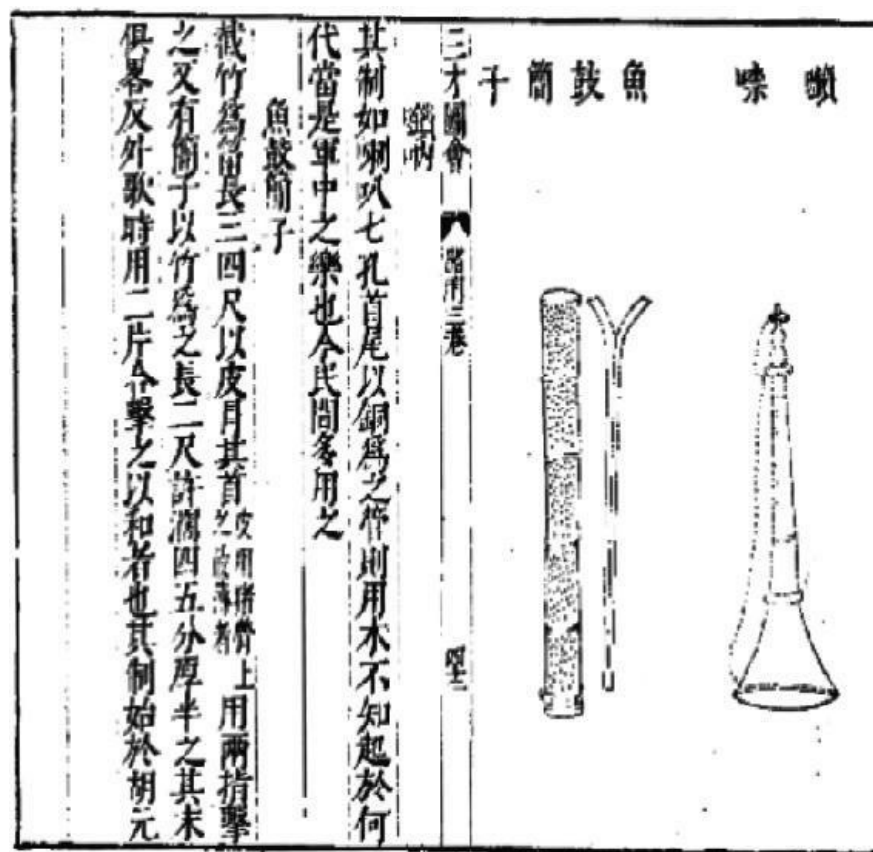 魚鼓簡子
三才圖會 器用三卷
吶
其制如喇叭七孔首尾以銅爲之管則用木不知起於何
代當是軍中之樂也今民間多用之
魚鼓簡子
截竹爲筩長三四尺以皮冒其首皮用猪膋上之最薄者用兩指擊
之又有簡子以竹爲之長二尺許濶四五分厚半之其末
俱畧反外歌時用二片合擊之以和者也其制始於胡元